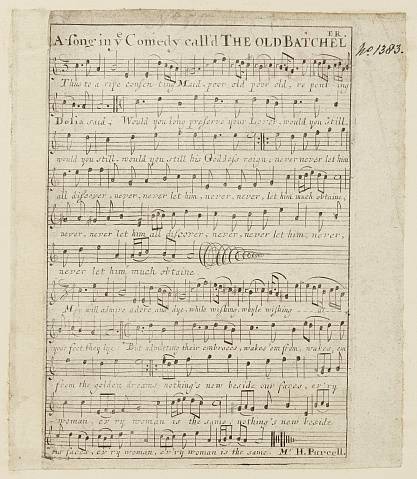 A song in yͤ Comedy call'd THE OLD BATCHEL
ER.
No. 1383.
Thus to a ripe consenting Maid, poor old poor old, repenting
Delia said, Would you long preserve your Lover, would you still,
would you still, would you still his Goddess reign, never never let him
all discover, never, never let him, never, never let him much obtaine,
never, never let him all discover, never, never let him, never,
never let him much obtaine.
Men will admire adore and dye, while wishing, whyle wishing at
your feet they lye. But admitting their embraces, wakes 'em from, wakes 'em
from the golden dreams, nothing's new beside our faces, ev'ry
woman, ev'ry woman is the same, nothing's new beside
our faces, ev'ry woman, ev'ry woman is the same. Mr. H. Purcell.